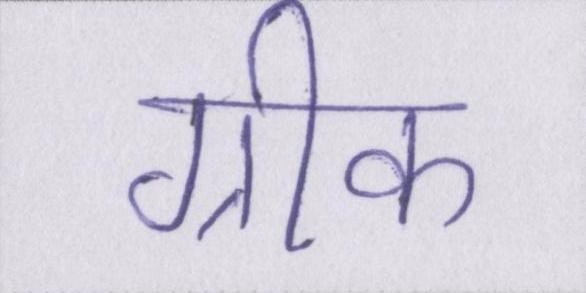 ग्रीक